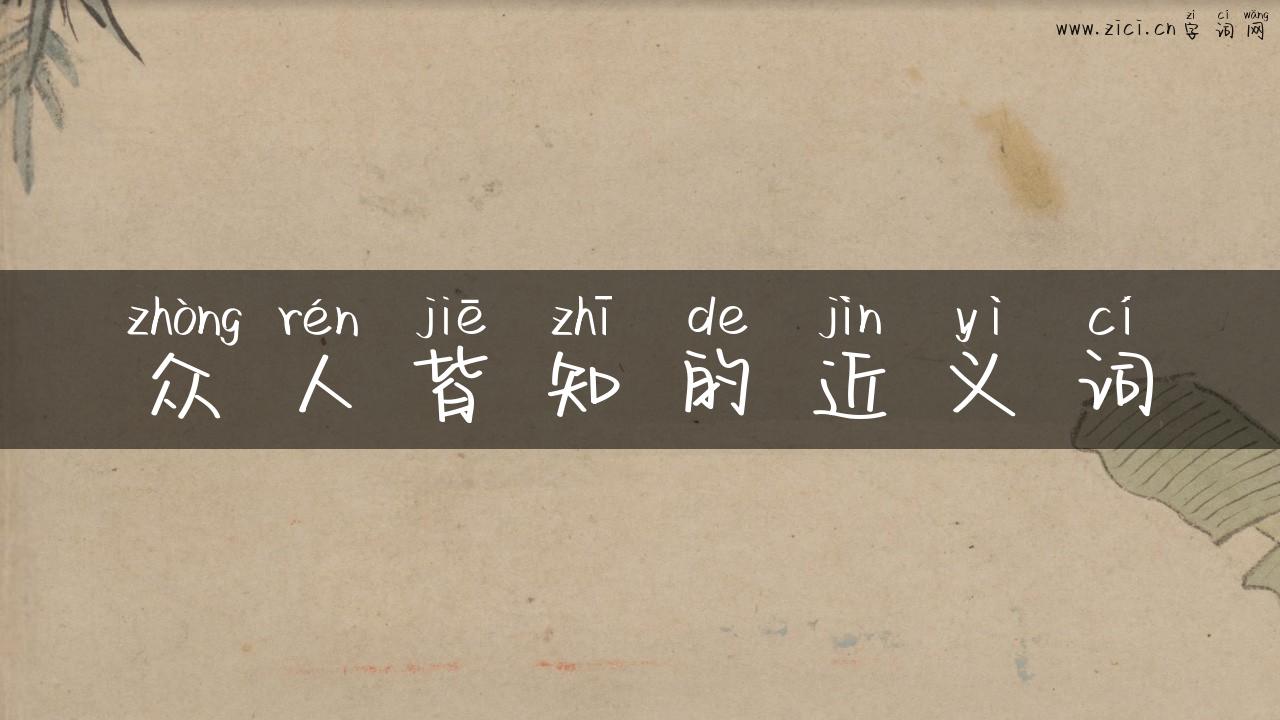 zì cí wǎng
www.zici.cn 字词网
zhòng rén jiē zhī de jìn yì cí
众人皆知的近义词